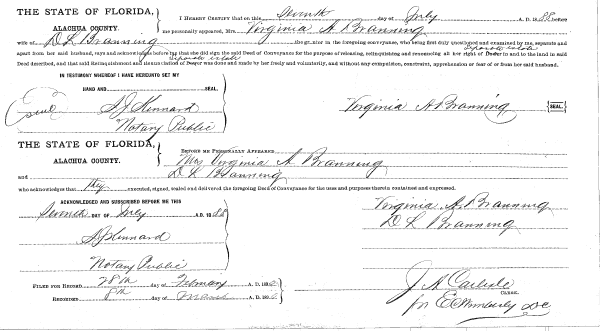 THE STATE OF FLORIDA,
ALACHUA COUNTY.
I HEREBY CERTIFY that on this Seventh day of July A. D. 1888, before
me personally appeared, Mrs Virginia A Branning
wife of D L Branning the grantor in the foregoing conveyance, who being first duly questioned and examined by me, separate and
apart from her said husband, says and acknowledges before me that she did sign the said Deed of Conveyance for the purpose of releasing, relinquishing and renouncing all her right of Dower in and to the land in said
Separate estate
Deed described, and that said Relinquishment and Renunciation of Dower was done and made by her freely and voluntarily, and without any compulsion, constraint, apprehension or fear of or from her said husband.
Separate estate
IN TESTIMONY WHEREOF I HAVE HEREUNTO SET MY
HAND AND SEAL.
S J Kennard
Notary Public
Virginia A Branning {SEAL}
THE STATE OF FLORIDA,
ALACHUA COUNTY.
BEFORE ME PERSONALLY APPEARED
Mrs Virginia A. Branning
and D L Branning
who acknowledges that they executed, signed, sealed and delivered the foregoing Deed of Conveyance for the uses and purposes therein contained and expressed.
ACKNOWLEDGED AND SUBSCRIBED BEFORE ME THIS
DAY OF July A.D. 1888
S J Kennard
Notary Public
Virginia A. Branning
D L Branning
FILED FOR RECORD 28th day of February A. D. 18
RECORDED 8th day of March A.D. 18
J A Carlisle
CLERK.
for E C Wimberly DC